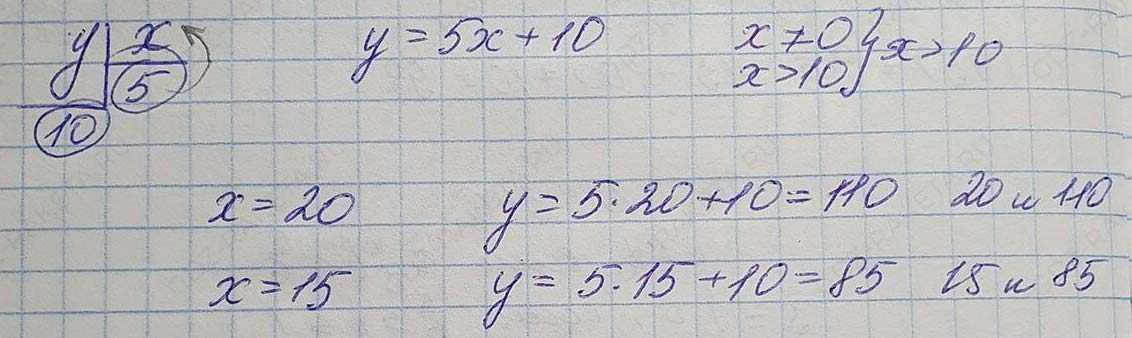 y x y = 5x + 10 x ≠ 0 } x > 10
5 x > 10
10
x = 20 y = 5·20 + 10 = 110 20 и 110
x = 15 y = 5·15 + 10 = 85 15 и 85